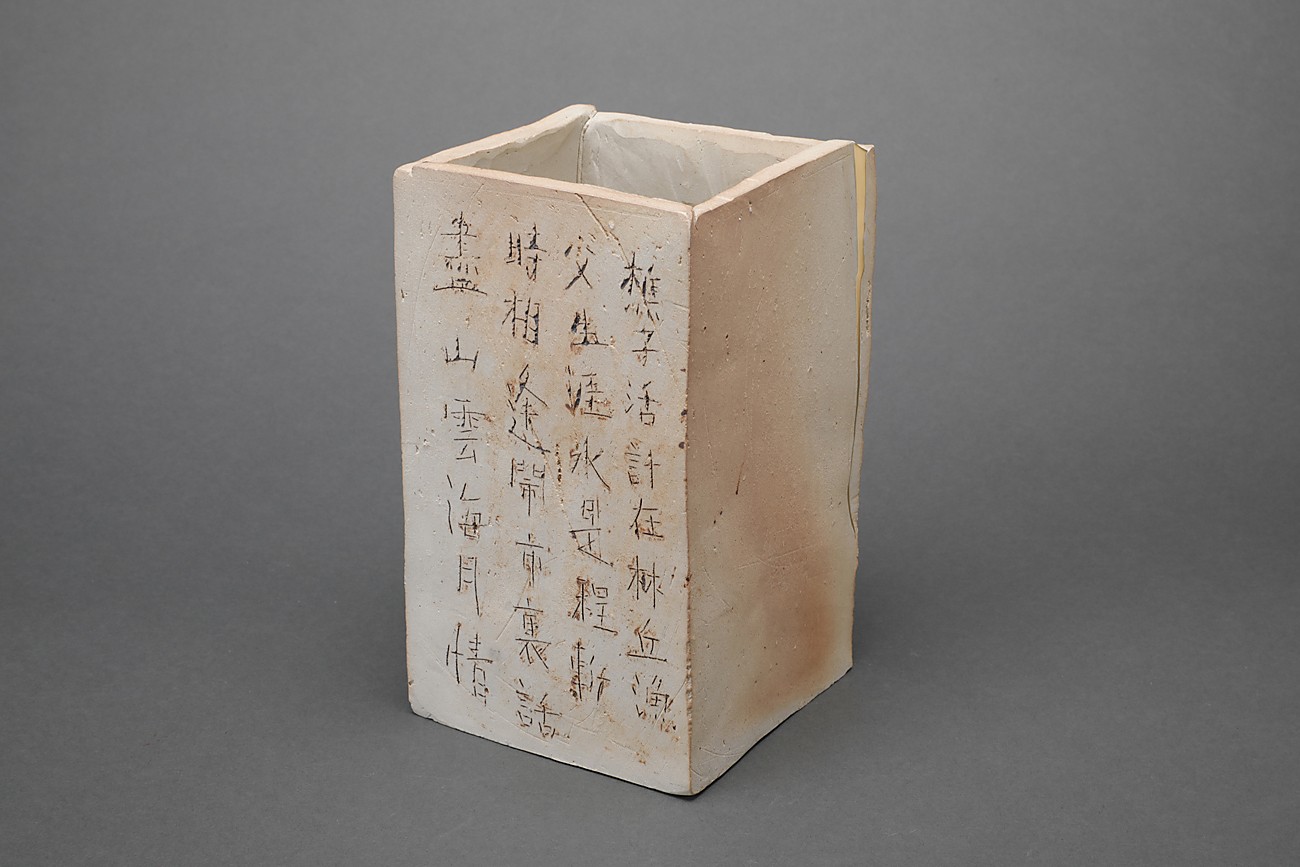 樵子活計在林丘漁
父生涯水是程暫
時相逢鬧市裏話
盡山雲海月情